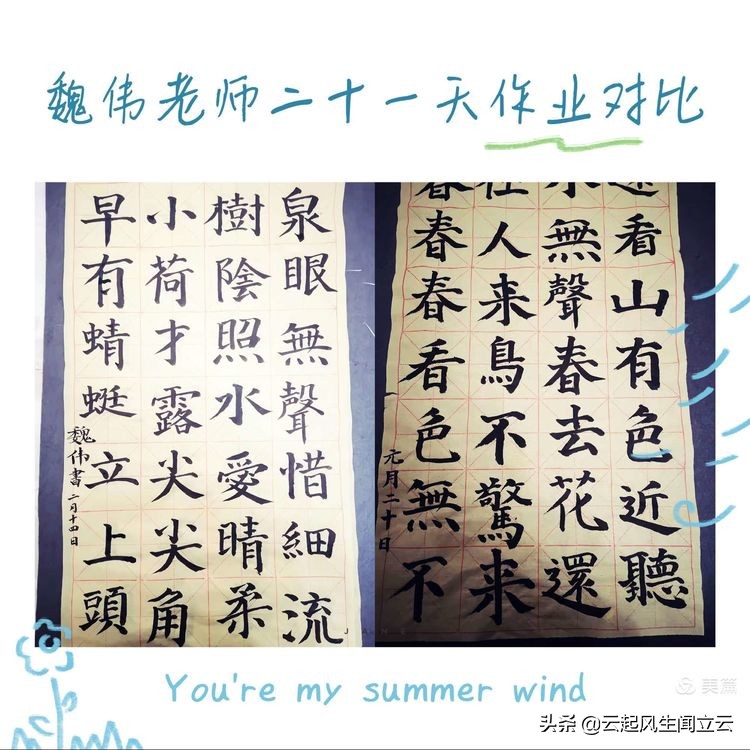 魏伟老师二十一天作业对比
泉眼無聲惜細流
樹陰照水愛晴柔
小荷才露尖尖角
早有蜻蜓立上頭
魏伟書二月十四日
遠看山有色近聽
水無聲春去花還
在人来鳥不驚来
春春春看色無不
元月二十日
JANE
You're my summer wind
美篇
头条 @云起风生闻立云